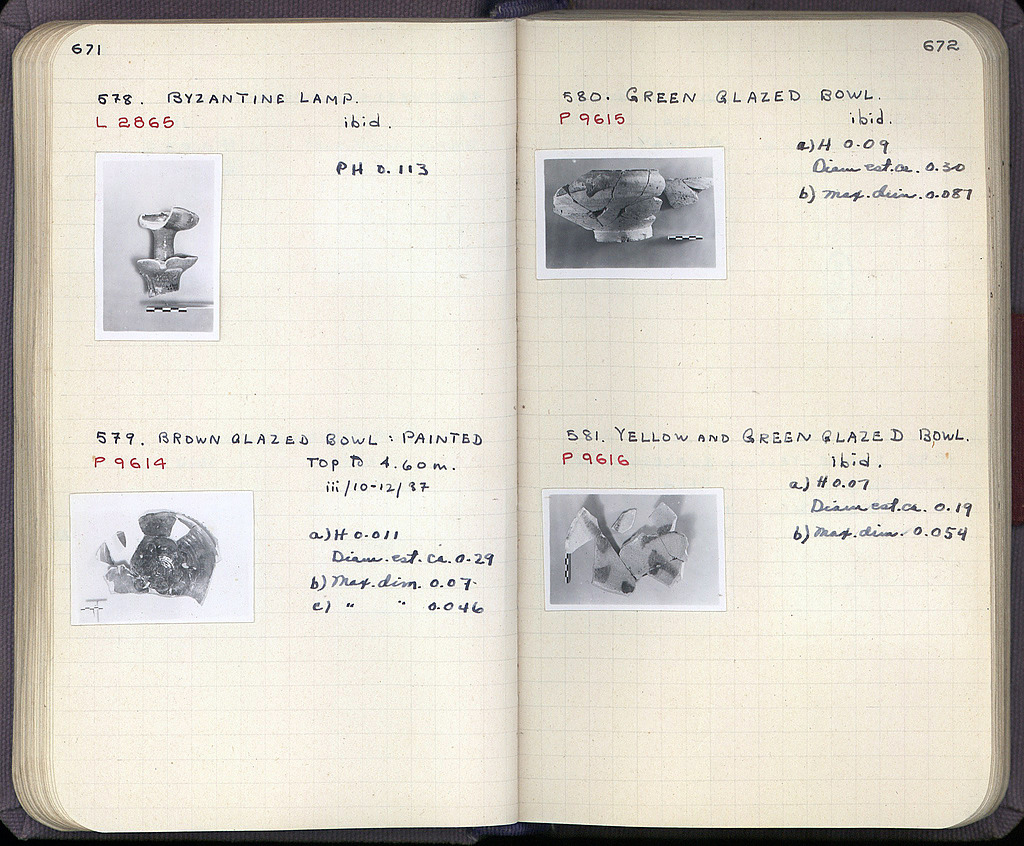 671
578. BYZANTINE LAMP.
L 2865 ibid.
PH 0.113
579. BROWN GLAZED BOWL : PAINTED
P 9614 TOP To 4.60 m.
iii/10-12/37
a) H 0.011
Diam. est. ca. 0.29
b) Max. dim. 0.07.
c) " " 0.046
672
580. GREEN GLAZED BOWL.
P 9615 ibid.
a) H 0.09
Diam est. ca. 0.30
b) max. dim. 0.087
581. YELLOW AND GREEN GLAZED BOWL.
P 9616 ibid.
a) H 0.07
Diam est. ca. 0.19
b) Max. dim. 0.054